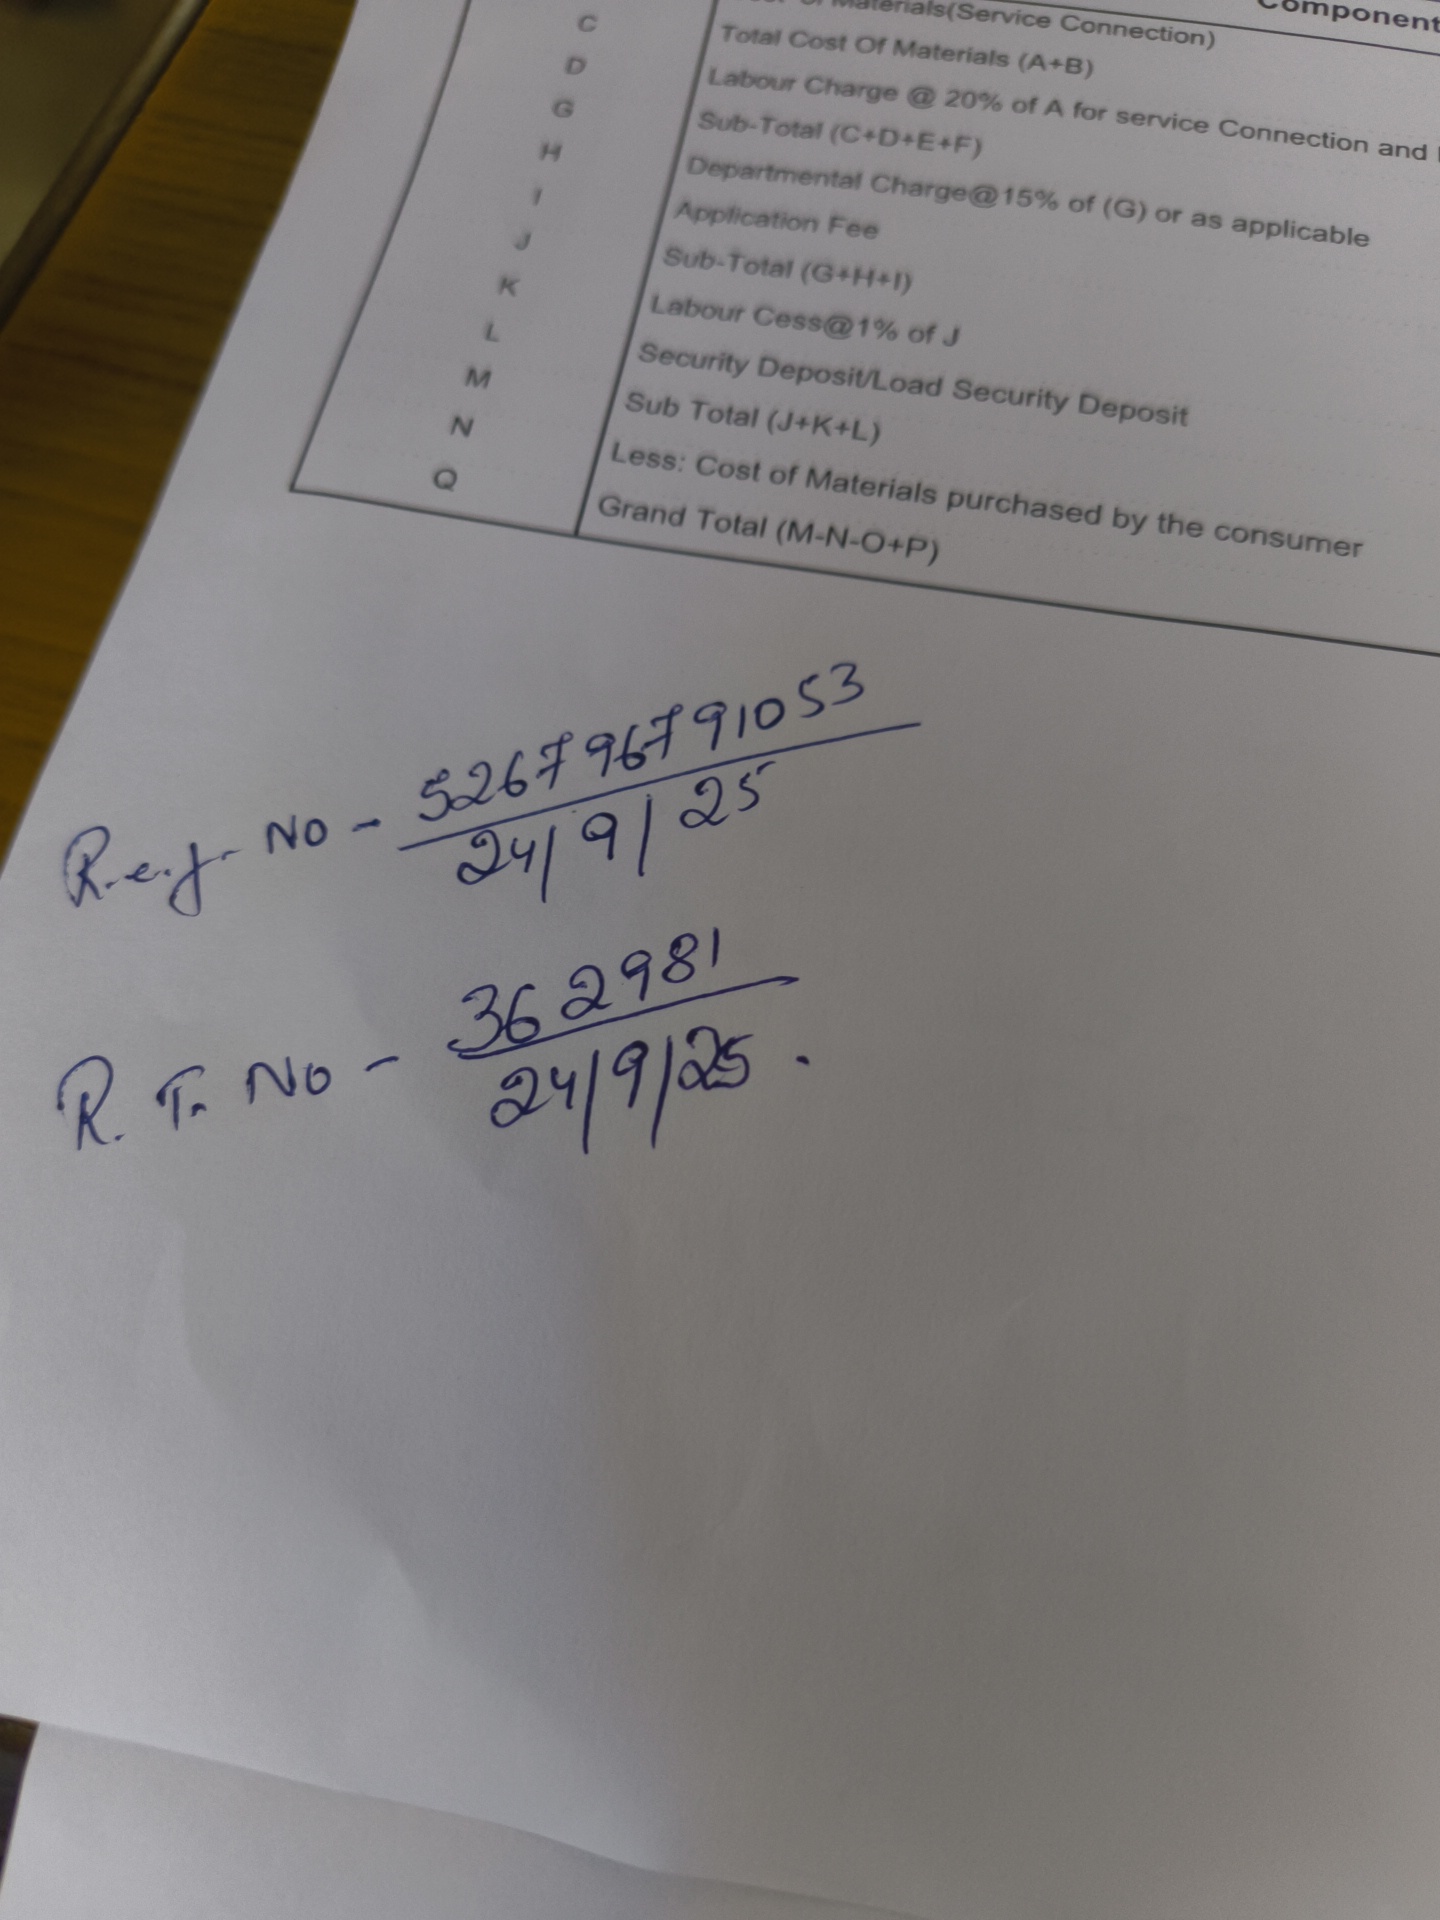 Component
Materials(Service Connection)
C Total Cost Of Materials (A+B)
D Labour Charge @ 20% of A for service Connection and
G Sub-Total (C+D+E+F)
H Departmental Charge@15% of (G) or as applicable
I Application Fee
J Sub-Total (G+H+I)
K Labour Cess@1% of J
L Security Deposit/Load Security Deposit
M Sub Total (J+K+L)
N Less: Cost of Materials purchased by the consumer
Q Grand Total (M-N-O+P)
R.e.g. No - 526796791053
24/9/25
R. T. No - 362981
24/9/25.